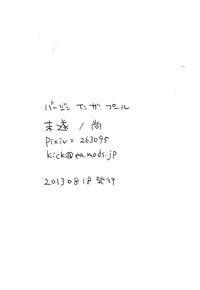 バージン イン ザ プール
未遂 / 尚
pixiv = 263095
kick@ea.mods.jp
20130818 発行